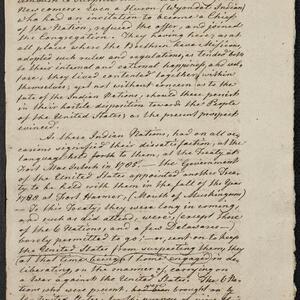 New comers. Even a Huron (Wyandot Indian)
who had an invitation to become a Chief
of the Nation, refused the offer, and joined
the Congregation. They having here, as at
all places where the Brethren have Missions,
adopted such rules and regulations, as tended both
to their internal and external happiness, and wel-
fare; they lived contented together, within
themselves, yet not without concern as to the
fate of the Indian Nations, should these persist
in their hostile disposition towards the People
of the United States, as the present prospect
evinced.
As these Indian Nations, had on all oc-
casions signified their dissatisfaction, at the
language held forth to them, at the Treaty at
Fort MacIntosh in 1785. — The Government
of the United States appointed another Trea-
ty to be held with them in the fall of the Year
1788 at Fort Harmer, (Mouth of Muskingum)
— To this Treaty, they were long in coming,
and such as did attend, were, (except those
of the 6 Nations, and a few Delawares
barely permitted to go, — or, sent on to keep
the United States from suspecting them, they
at that time being at home engaged in de-
liberating, on the manner of carrying on
a War against the United States. The 6 Na-
tions, who were present, had been brought on to